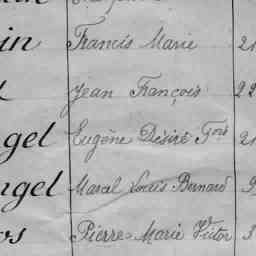 in Francis Marie 21
l Jean François 22
gel Eugène Désiré Fois 21
ngel Marcel Louis Bernard
os Pierre-Marie Victor 3